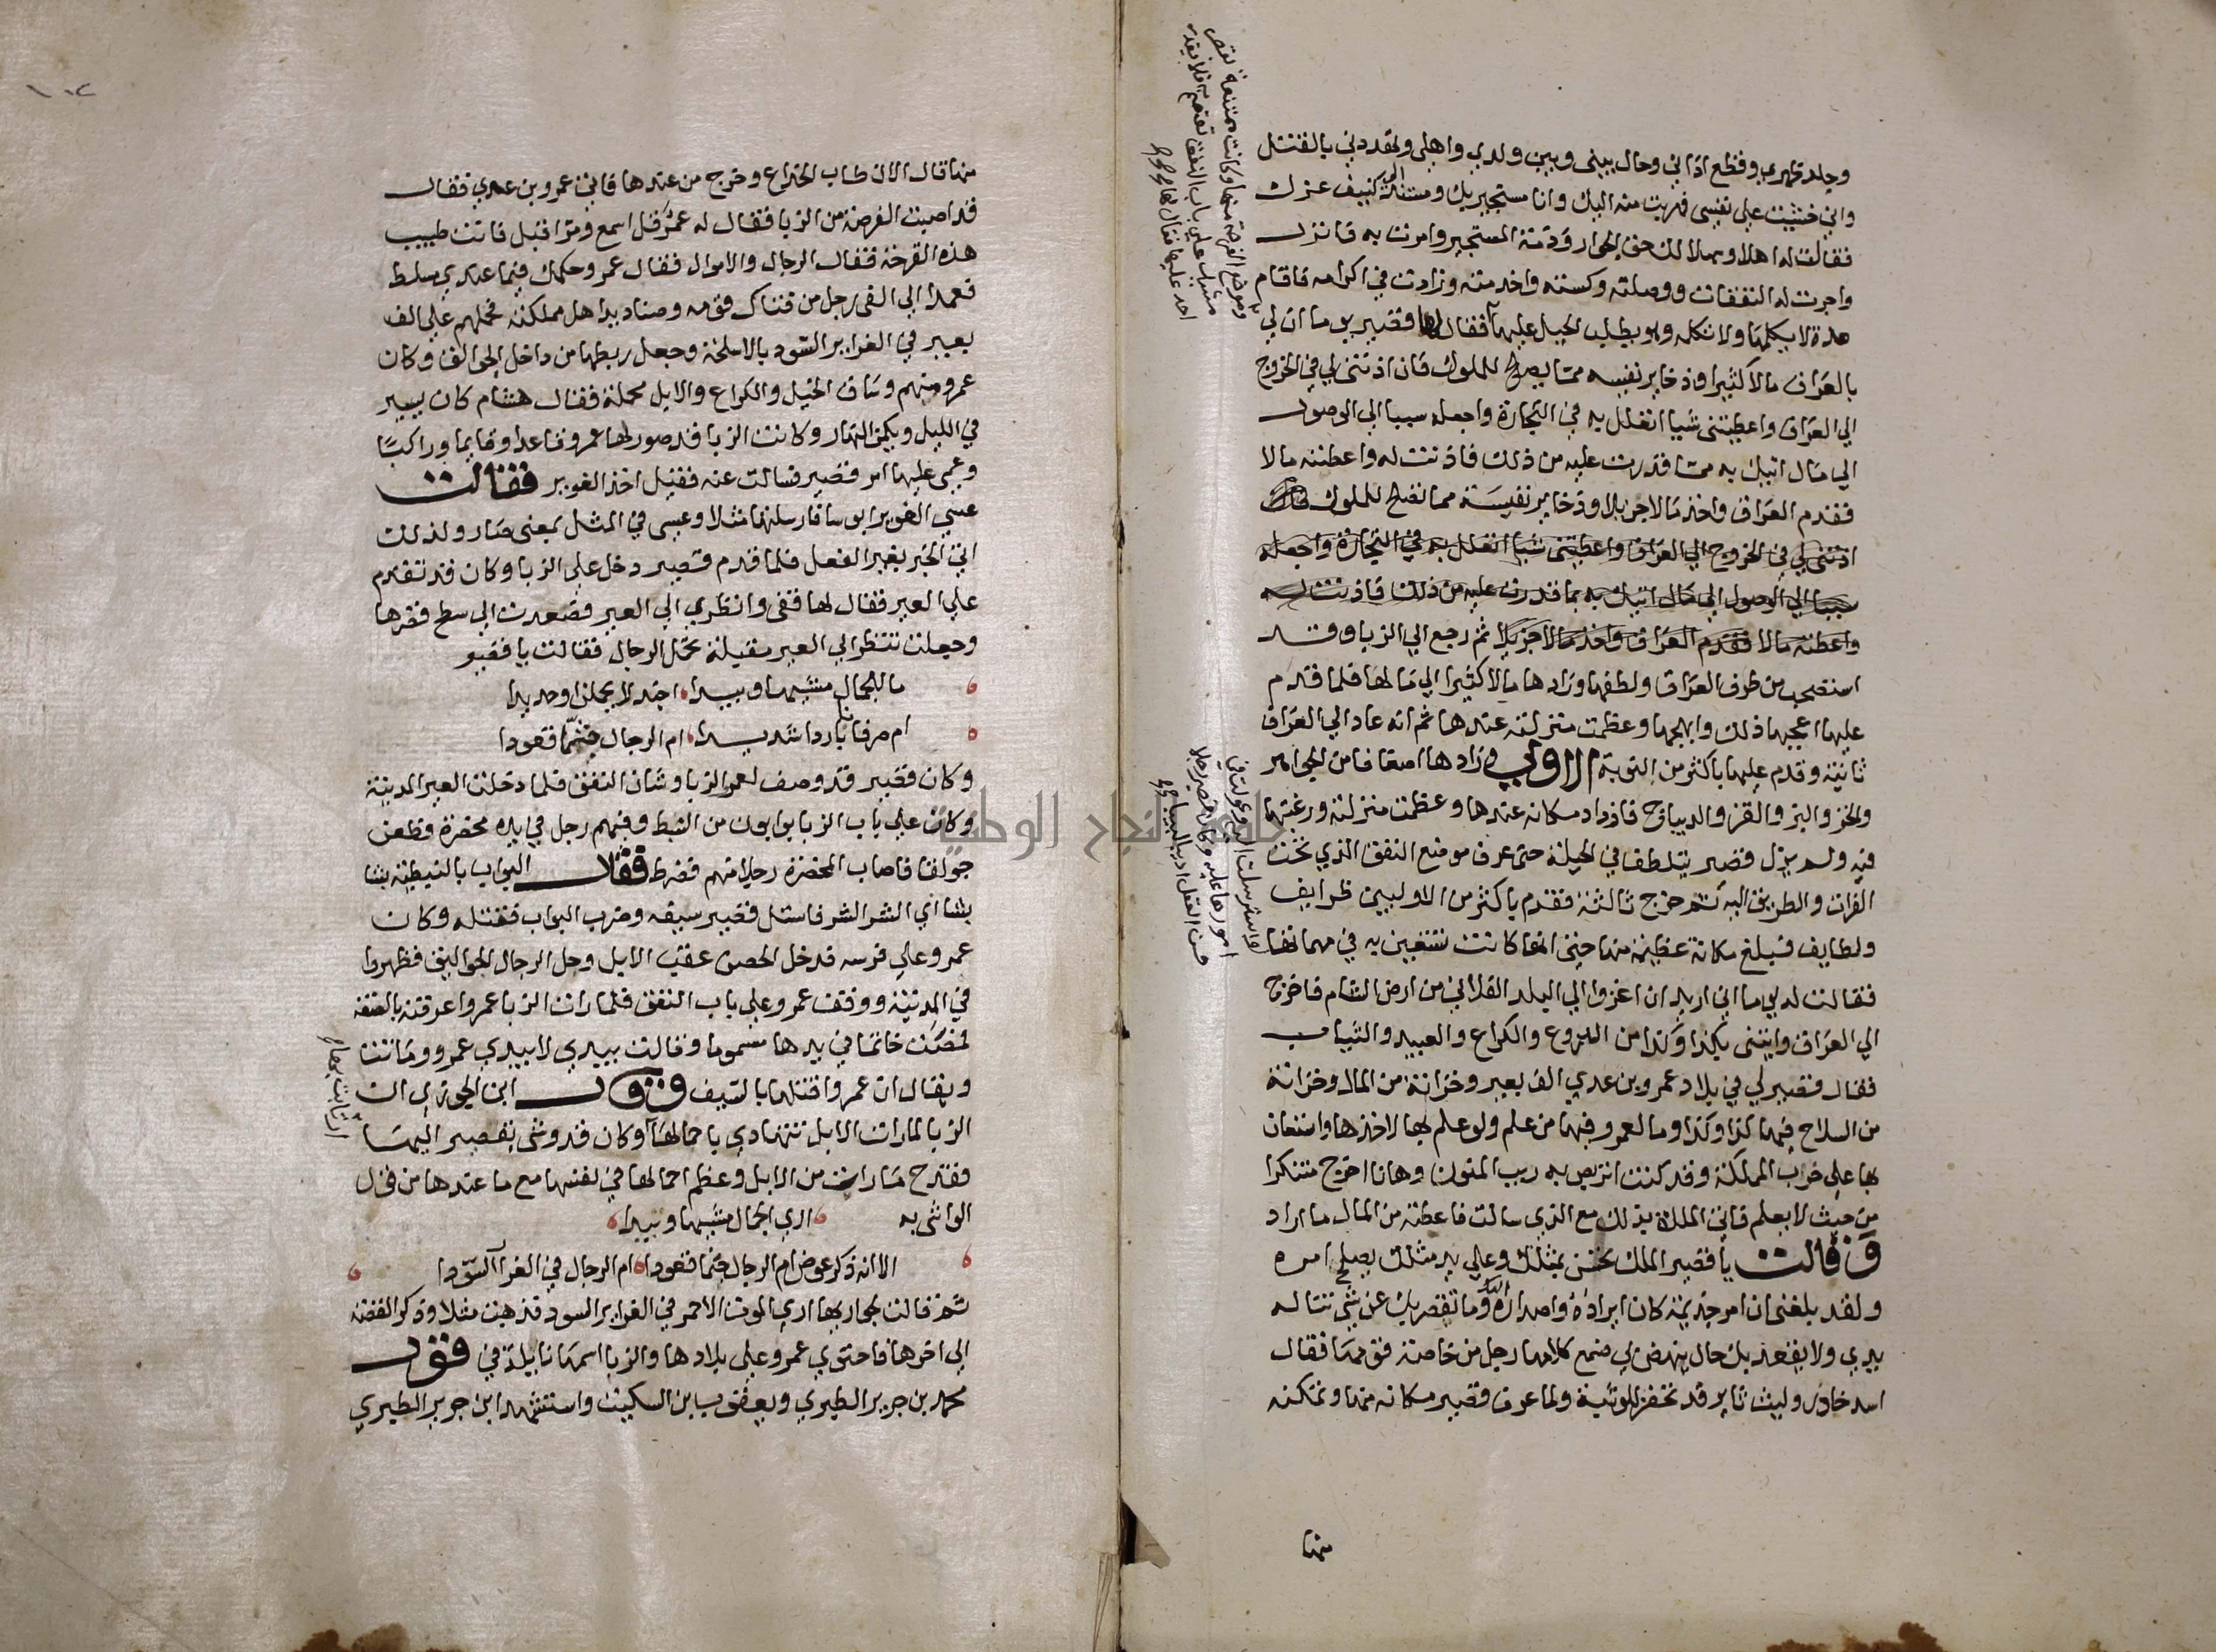 وجلد ظهري وقطع اذاني وحال بيني وبين ولدي واهلي ولقد دني بالقتل
واني خشيت علي نفسي فهربت منه اليك وانا مستجير بك ومستند الى كنيف عزك
فقالت له اهلا وسهلا لك حق الجوار وذمة المستجير وامرت به فانزل
واجرت له النفقات ووصلته وكسته واخدمته وزادت في اكرامه فاقام
مدة لا يكلمها ولا تكلمه وهو يطلب الحيل عليها فقال لها قصير يوما ان لي
بالعراق مالا كثيرا وذخاير نفيسه مما يصلح للملوك فان اذنتي لي في الخروج
الي العراق واعطيتني شيا اتعلل به في التجارة واجعله سببا الي الوصول
الي مال اتيك به مما قدرت عليه من ذلك فاذنت له واعطته مالا
فقدم العراق واخذ مالا جزيلا وذخاير نفيسة مما تصلح للملوك فان
اذنتي لي في الخروج الي العراق واعطيتني شيا اتعلل به في التجارة واجعله
سببا الي الوصول الي مال اتيك به بما قدرت عليه من ذلك فاذنت له
واعطته مالا فقدم العراق واخذ مالا جزيلا ثم رجع الي الزبا وقد
استصحب من طرف العراق ولطفها وزادها مالا كثيرا الي مالها فلما قدم
عليها اعجبها ذلك وابهجها وعظمت منزلته عندها ثم انه عاد الي العراق
ثانية وقدم عليها باكثر من النوبة الاولي وزادها اضعافا من الجواهر
والخز والبز والقز والديباج فازداد مكانه عندها وعظمت منزلته ورغبتها
فيه ولم يزل قصير يتلطف في الحيلة حتى عرف موضع النفق الذي تحت
الفرات والطريق اليه ثم خرج ثالثة فقدم باكثر من الاوليين ظرايف
ولطايف فبلغ مكانة عظيمة منها حتى انها كانت تستعين به في مهماتها
فقالت له يوما اني اريد ان اغزوا الي البلد الفلاني من ارض الشام فاخرج
الي العراق واتيني بكذا وكذا من الدروع والكراع والعبيد والثياب
فقال قصير لي في بلاد عمرو بن عدي الف بعير وخزانة من المال وخزانة
من السلاح فيها كذا وكذا وما لعمرو فيها من علم ولو علم بها لاخذها واستعان
بها علي حرب الملكة وقد كنت اتربص به ريب المنون وها انا اخرج متنكرا
من حيث لا يعلم فاتي الملكة بذلك مع الذي سالت فاعطته من المال ما اراد
وقالت يا قصير الملك يحسن بمثلك وعلي يد مثلك يصلح امره
ولقد بلغني ان امر جذيمة كان ايراده واصداره اليك وما تقصر بك عن شي تناله
يدي ولا يقعد بك حال ينهض لي فسمع كلامها رجل من خاصة قومها فقال
اسد خادر وليث ثاير قد تحفز للوثبة ولما عرف قصير مكانه منها وتمكنه
منها
وموضع الفرجة منها وكانت ممتنعة
احد عليها فقال لها
واسترسلت اليه وعولت في
امورها عليه وكان قصير رجلا
حسن العقل اديبا لبيبا
منها قال الان طاب الخداع وخرج من عندها فاتي عمرو بن عدي فقال
قد اصبت الفرصة من الزبا فقال له عمرو قل اسمع ومر اقبل فانت طبيب
هذه القرحة فقال الرجال والاموال فقال عمرو حكمك فيما عندي مسلط
فعمد الي الفي رجل من فتاك قومه وصناديد اهل مملكته فحملهم علي الف
بعير في الغراير السود بالاسلحة وجعل ربطها من داخل الجوالق وكان
عمرو منهم وساق الخيل والكراع والابل محملة فقال هشام كان يسير
في الليل ويكمن النهار وكانت الزبا قد صور لها عمرو قاعدا وقايما وراكبا
وعمي عليها امر قصير فسالت عنه فقيل اخذ الغوير فقالت
عسي الغوير ابوسا فارسلتها مثلا وعسى في المثل بمعنى صار ولذلك
اتي الخبر بغير الفعل فلما قدم قصير دخل علي الزبا وكان قد تقدم
علي العير فقال لها قفي وانظري الي العير فصعدت الي سطح قصرها
وجعلت تنظر الي العير مقبلة تحمل الرجال فقالت يا قصير
ما للجمال مشيها وييدا اجندلا يحملن ام حديدا
ام صرفانا باردا شديدا ام الرجال جثما قعودا
وكان قصير قد وصف لعمرو الزبا وشان النفق فلما دخلت العير المدينة
وكان علي باب الزبا بوابون من النبط وفيهم رجل في يده مخصرة فطعن
جولقا فاصاب المخصرة رجلا منهم فضرط فقال البواب بالنبطية بشتا
بشتا اي الشر الشر فاستل قصير سيفه وضرب البواب فقتله وكان
عمرو علي فرسه فدخل الحصن عقب الابل وحل الرجال الجواليق فظهروا
في المدينة ووقف عمرو علي باب النفق فلما رات الزبا عمروا عرفته بالصفة
فمصت خاتما في يدها مسموما وقالت بيدي لا بيدي عمرو وماتت
ويقال ان عمروا قتلها بالسيف وقال ابن الجوزي ان
الزبا لما رات الابل تتهادي باحمالها وكان قد وشى بقصير اليها
فقدح ما رات من الابل وعظم احمالها في نفسها مع ما عندها من قول
الواشي به اري الجمال مشيها وييدا
الا انه ذكر عوض ام الرجال جثما قعودا ام الرجال في الغراير السودا
ثم قالت لجواريها اري الموت الاحمر في الغراير السود فذهبت مثلا وذكر القصة
الي اخرها فاحتوي عمرو علي بلادها والزبا اسمها نايلة في قول
محمد بن جرير الطبري ويعقوب بن السكيت واستشهد ابن جرير الطبري